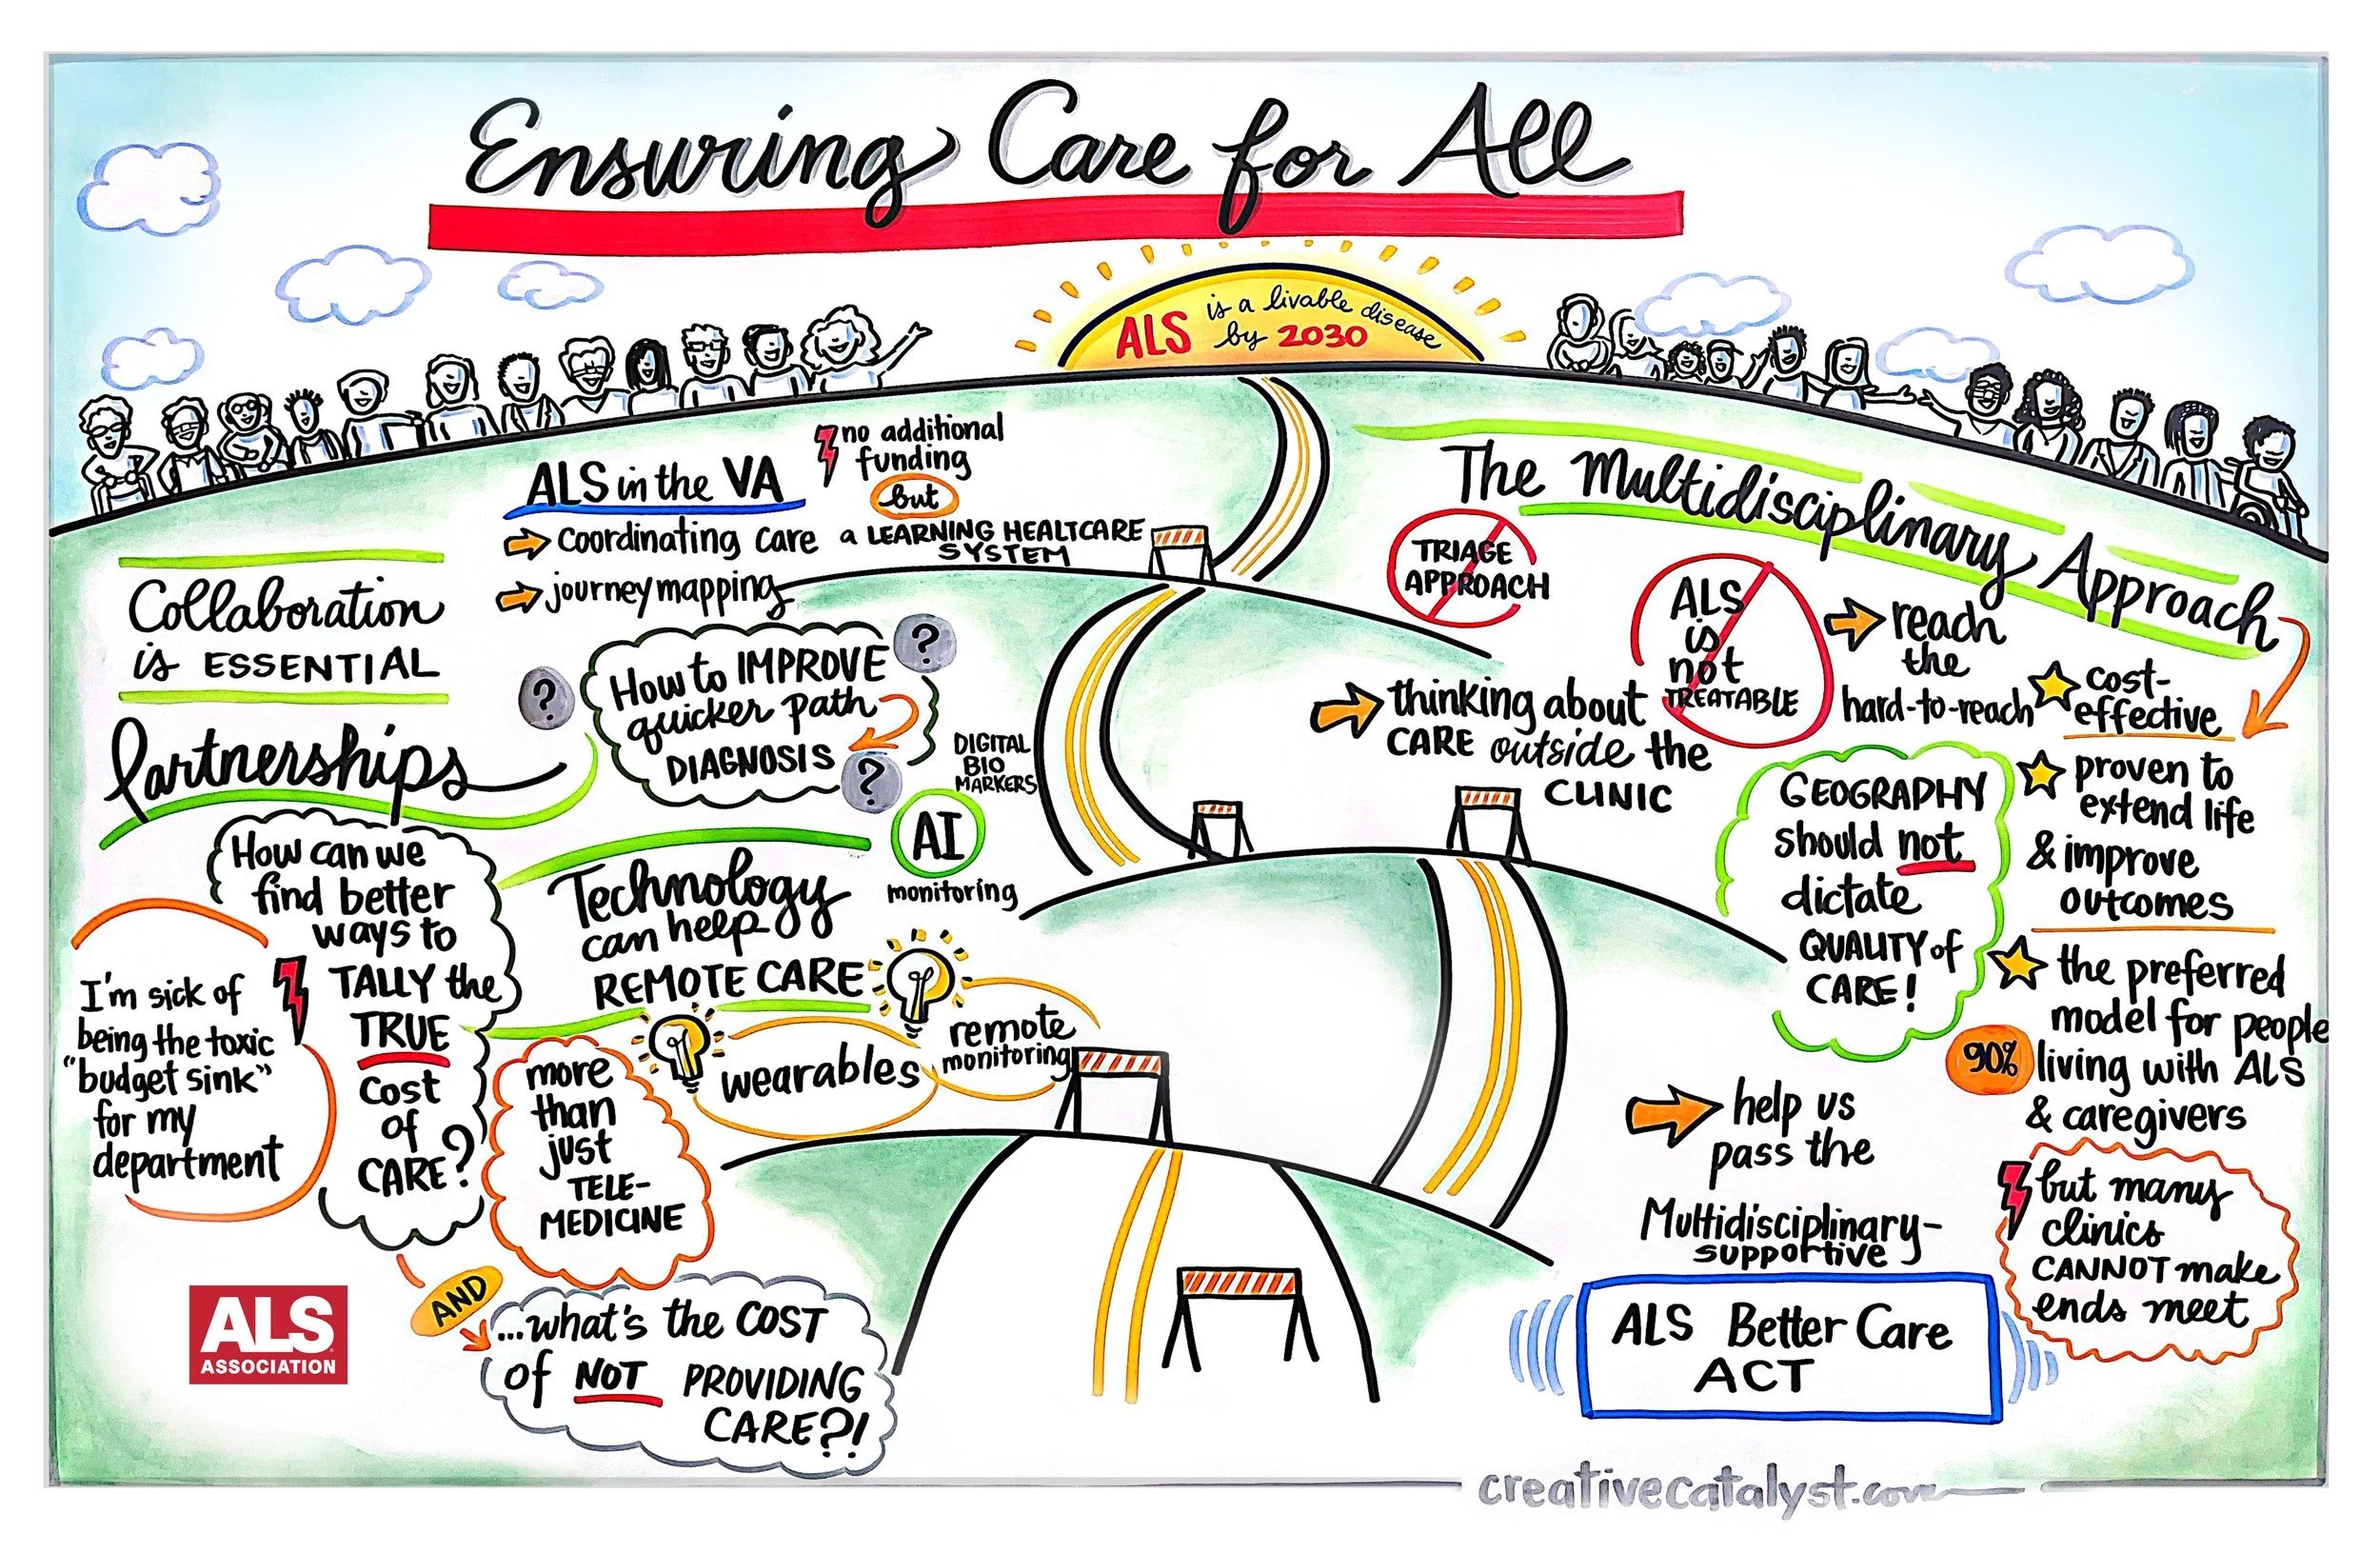 Ensuring Care for All
ALS is a livable disease
by 2030
ALS in the VA
no additional
funding
but
a LEARNING HEALTCARE
SYSTEM
coordinating care
journey mapping
Collaboration
is ESSENTIAL
Partnerships
How to IMPROVE
quicker path
DIAGNOSIS
?
?
?
DIGITAL
BIO
MARKERS
AI
monitoring
Technology
can help
REMOTE CARE
wearables
remote
monitoring
more
than
just
TELE-
MEDICINE
How can we
find better
ways to
TALLY the
TRUE
cost
of
CARE?
I'm sick of
being the toxic
"budget sink"
for my
department
AND
...what's the COST
of NOT PROVIDING
CARE?!
ALS
ASSOCIATION
The Multidisciplinary Approach
TRIAGE
APPROACH
ALS
is
not
TREATABLE
reach
the
hard-to-reach
thinking about
CARE outside the
CLINIC
cost-
effective
proven to
extend life
& improve
outcomes
the preferred
model for people
90% living with ALS
& caregivers
GEOGRAPHY
should not
dictate
QUALITY of
CARE!
but many
clinics
CANNOT make
ends meet
help us
pass the
Multidisciplinary-
supportive
ALS Better Care
ACT
creativecatalyst.com